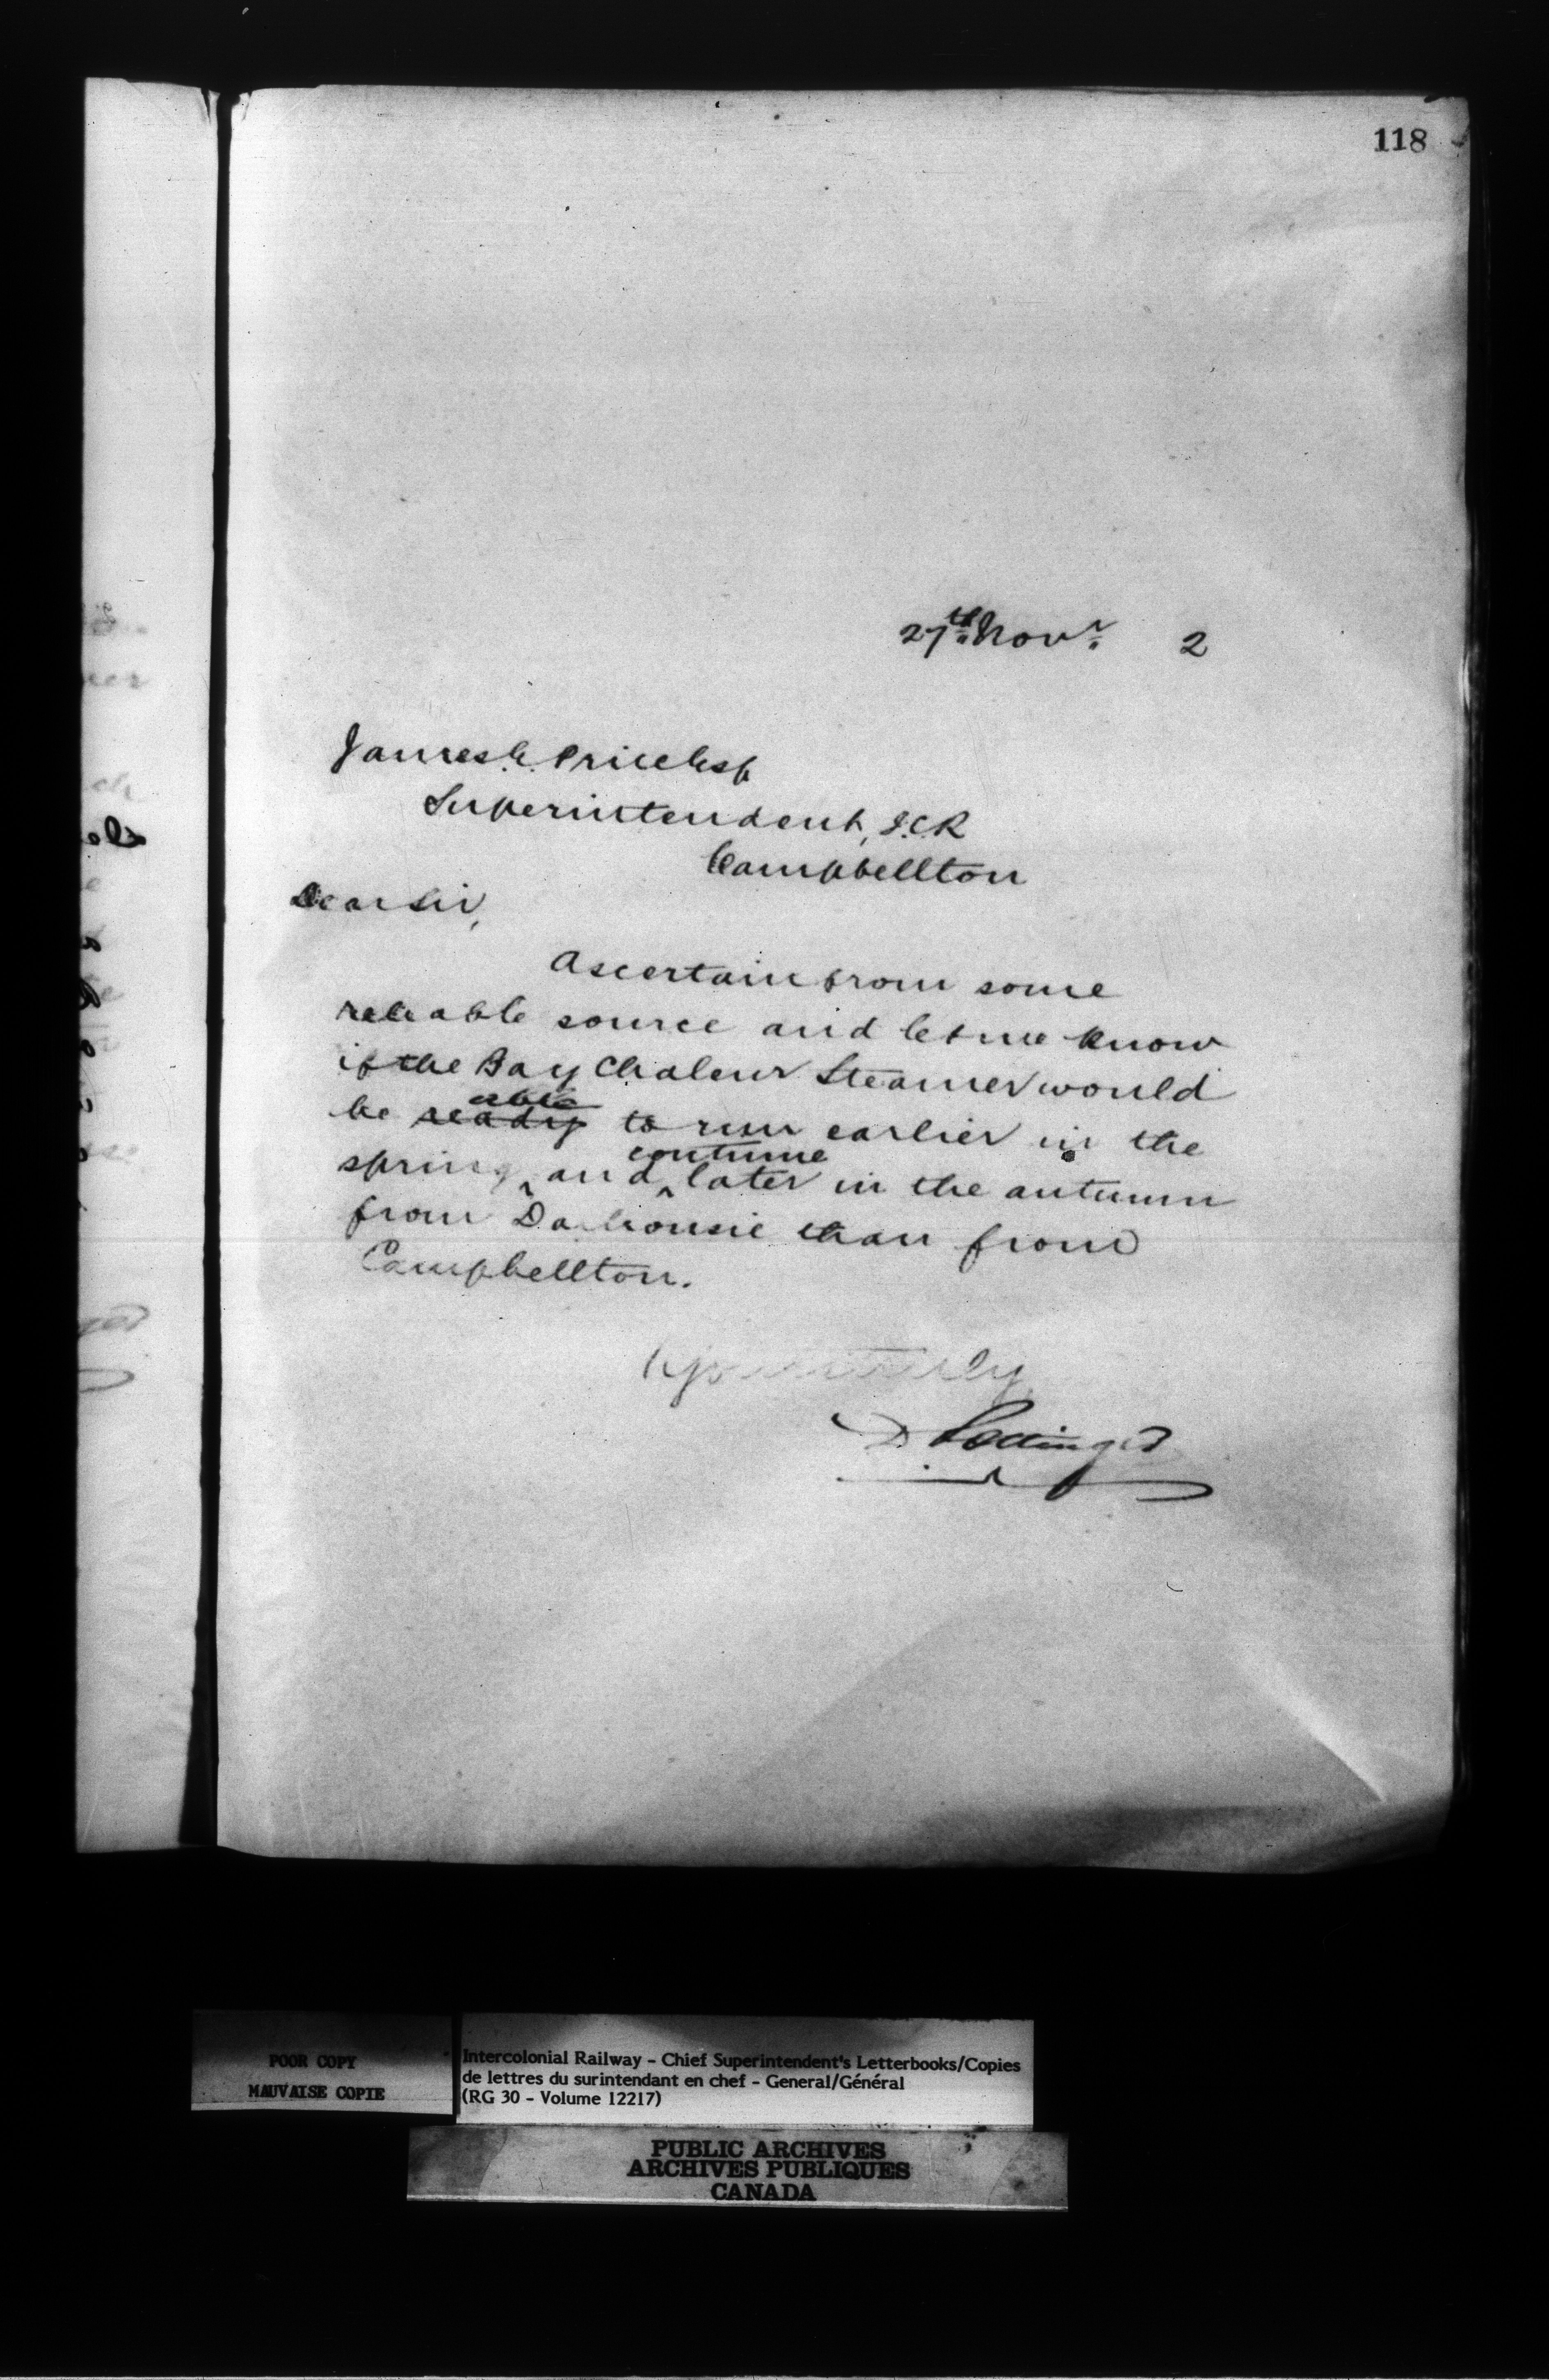 118
27th Novr 2
James E. Price Esq
Superintendent, I.C.R
Campbellton
Dear Sir,
Ascertain from some
reliable source and let me know
if the Bay Chaleur Steamer would
able
be ready to run earlier in the
continue
spring, and later in the autumn
from Dalhousie than from
Campbellton.
Yours truly
D Pottinger
POOR COPY
MAUVAISE COPIE
Intercolonial Railway - Chief Superintendent's Letterbooks/Copies
de lettres du surintendant en chef - General/Général
(RG 30 - Volume 12217)
PUBLIC ARCHIVES
ARCHIVES PUBLIQUES
CANADA